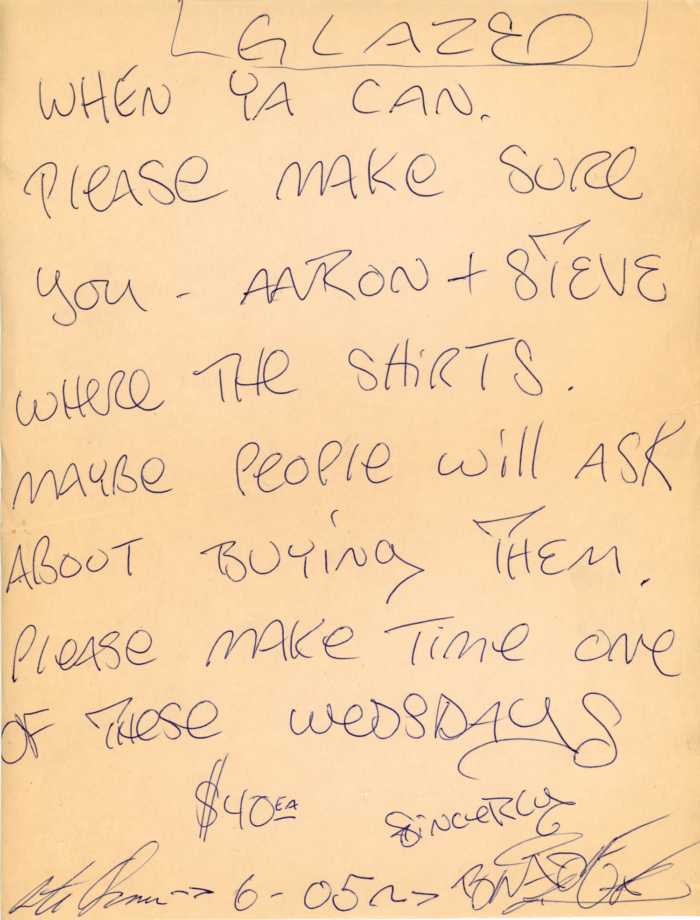 GLAZED
WHEN YA CAN.
PleASe MAKe SURe
you - AARON + STEVE
WHeRe THe SHiRTS.
MAYBe PeoPle will ASK
ABOUT BUYiNg THEM.
PleASe MAKe TiMe ONe
OF THeSe WeDSDAYS
$40 EA SiNCeRly
6-05